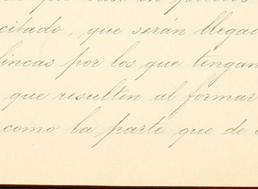 citado, que serán llegad
fincas por los que tengan
que resulten al formar
como la parte que de